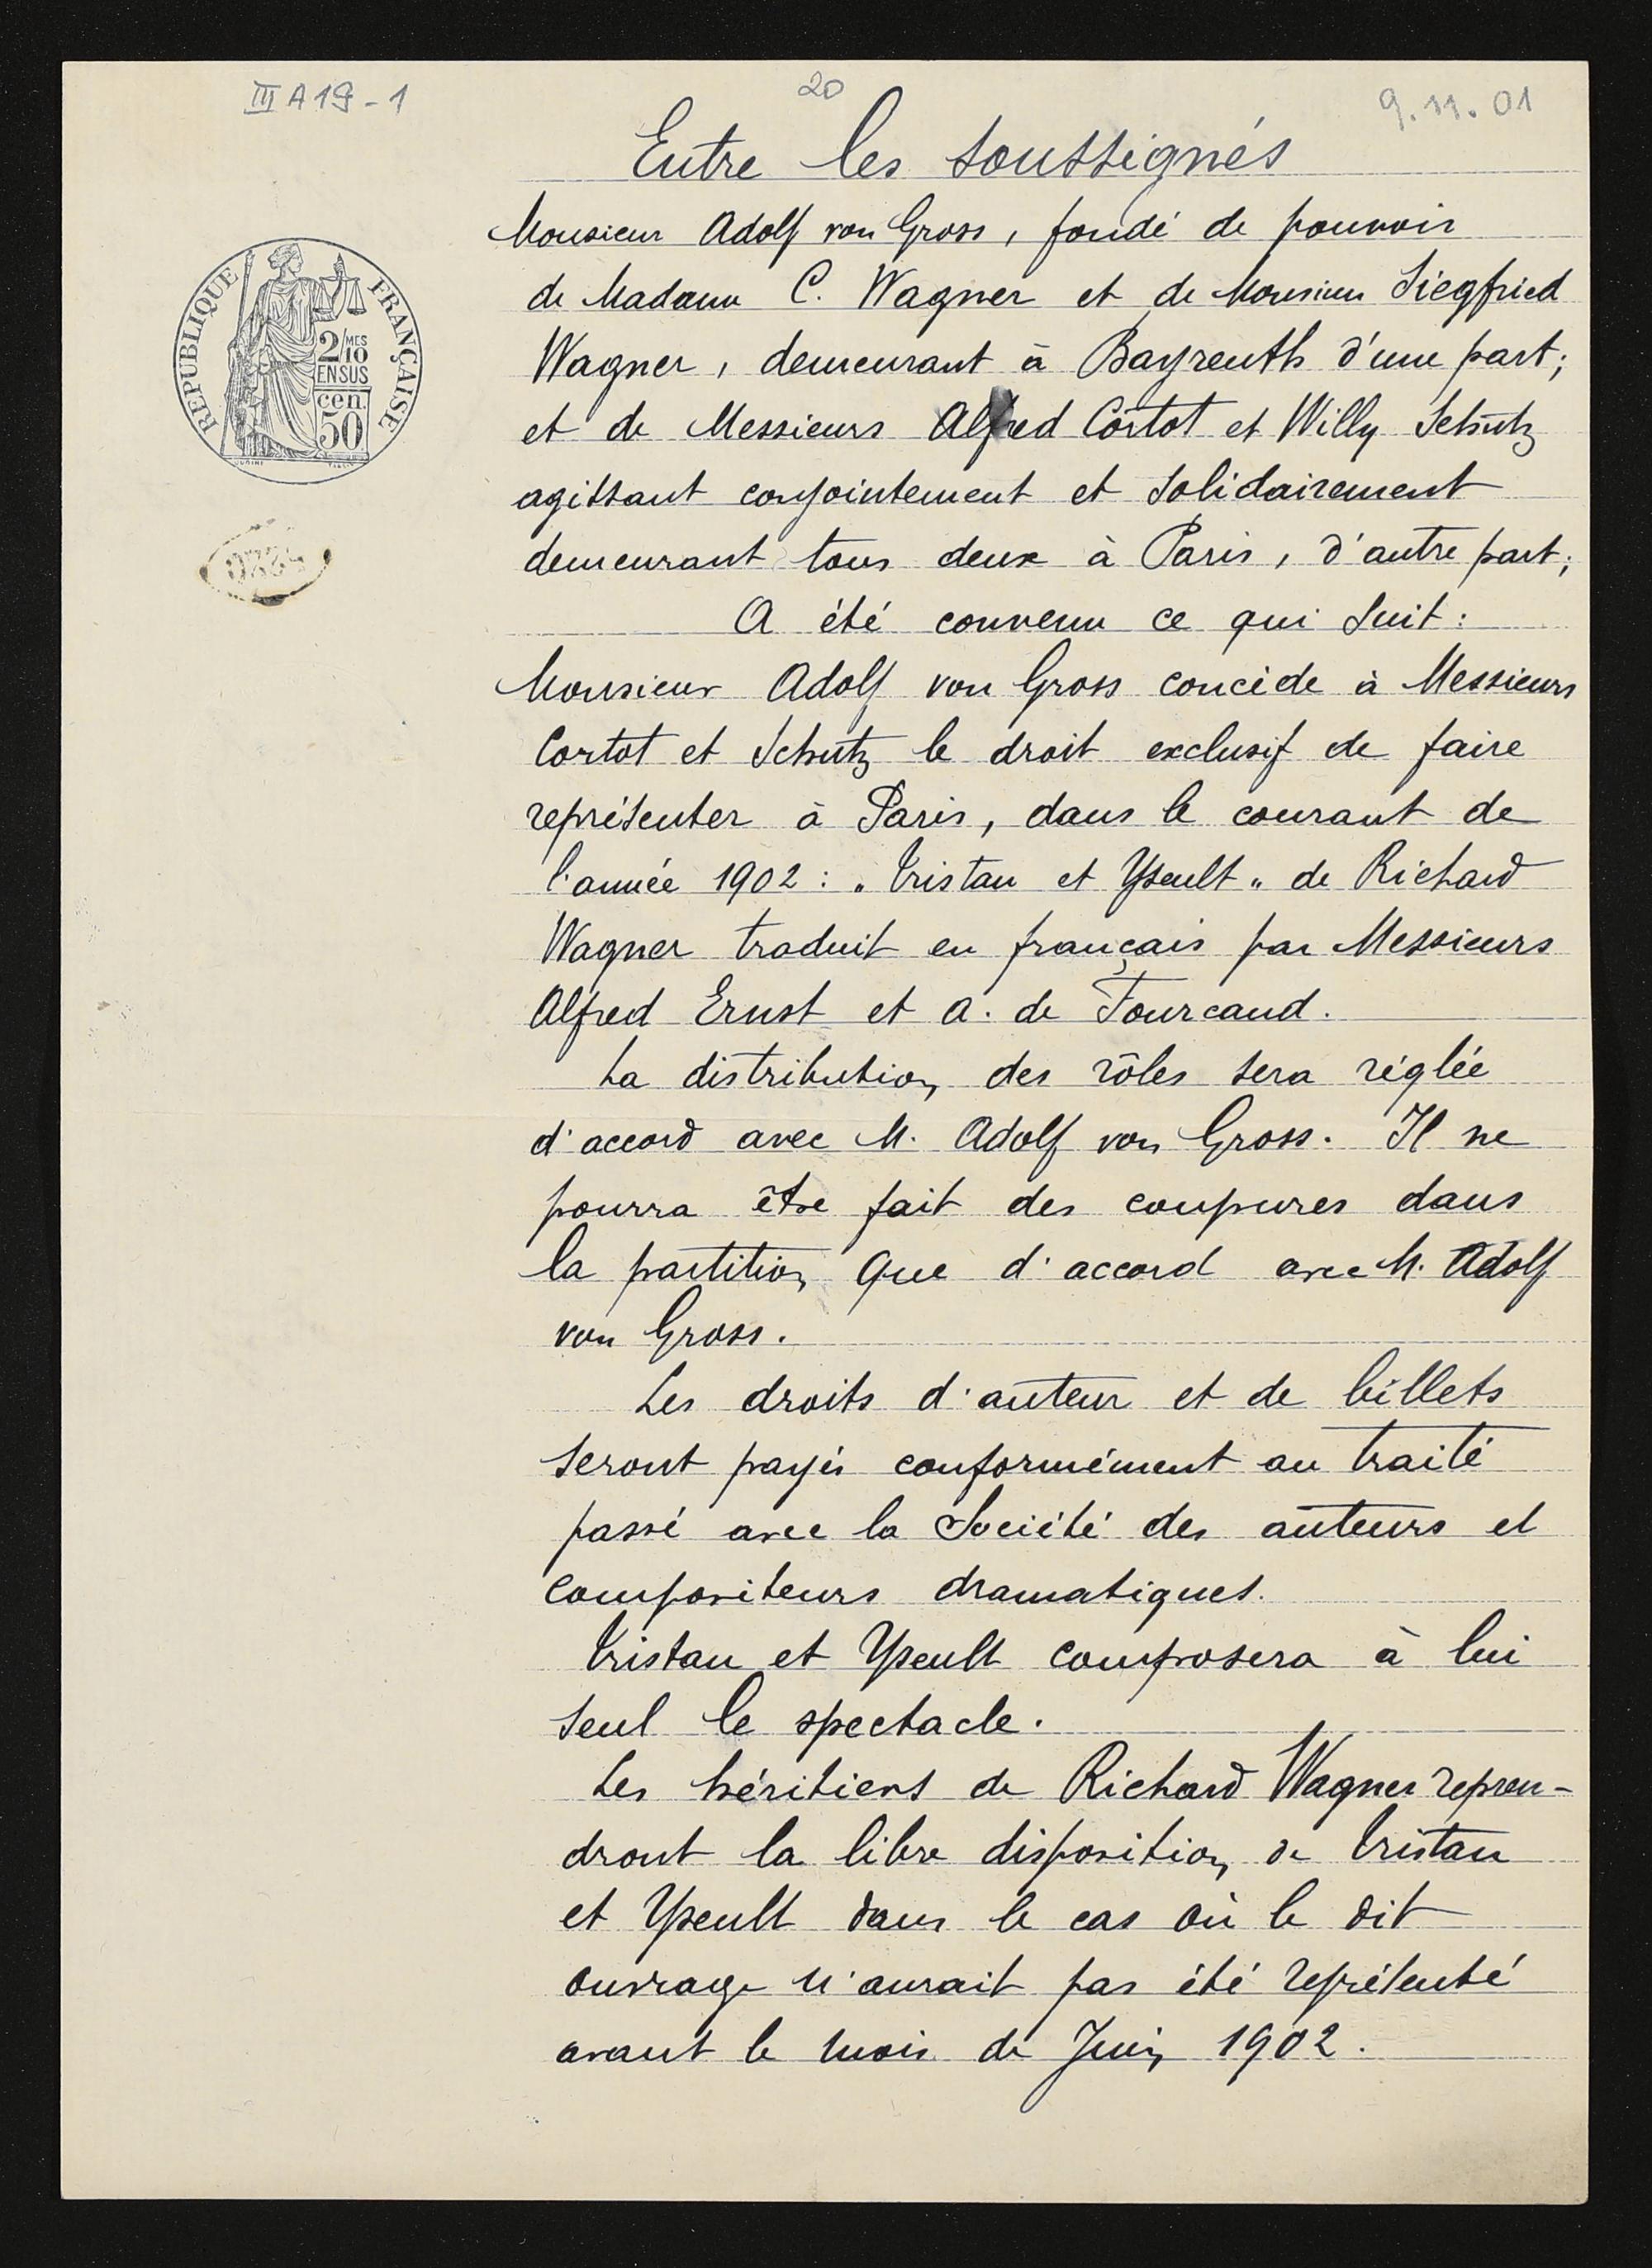 III A 19 - 1
20
9.11.01
Entre les soussignés
Monsieur Adolf von Gross, fondé de pouvoir
de Madame C. Wagner et de Monsieur Siegfried
Wagner, demeurant à Bayreuth d'une part;
et de Messieurs Alfred Cortot et Willy Schutz
agissant conjointement et solidairement
demeurant tous deux à Paris, d'autre part;
A été convenu ce qui suit:
Monsieur Adolf von Gross concède à Messieurs
Cortot et Schutz le droit exclusif de faire
représenter à Paris, dans le courant de
l'année 1902: "Tristan et Yseult" de Richard
Wagner traduit en français par Messieurs
Alfred Ernst et a. de Fourcaud.
La distribution des rôles sera réglée
d'accord avec M. Adolf von Gross. Il ne
pourra être fait des coupures dans
la partition que d'accord avec M. Adolf
von Gross.
Les droits d'auteur et de billets
seront payés conformément au traité
passé avec la Société des auteurs et
compositeurs dramatiques.
Tristan et Yseult composera à lui
seul le spectacle.
Les héritiers de Richard Wagner repren-
dront la libre disposition de Tristan
et Yseult dans le cas où le dit
ouvrage n'aurait pas été représenté
avant le mois de Juin 1902.
REPUBLIQUE FRANÇAISE
2/10 MES
EN SUS
cen.
50